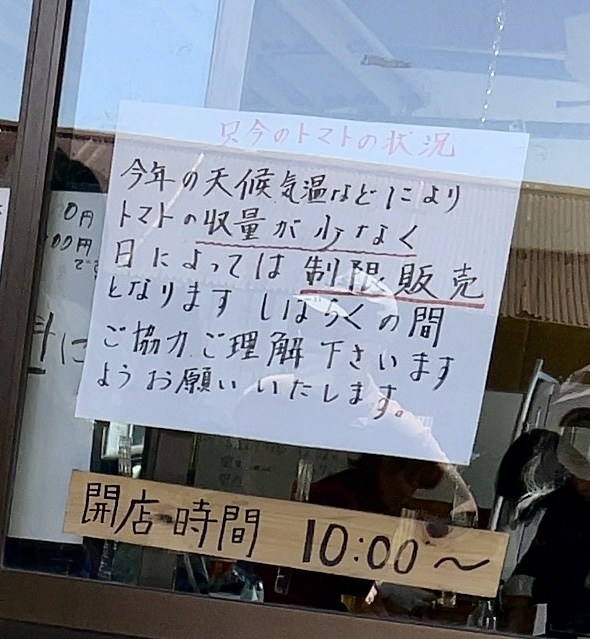 只今のトマトの状況
今年の天候気温などにより
トマトの収量が少なく
日によっては制限販売
となります しばらくの間
ご協力ご理解下さいます
ようお願いいたします。
0円
00円
です
料に
開店時間 10:00～